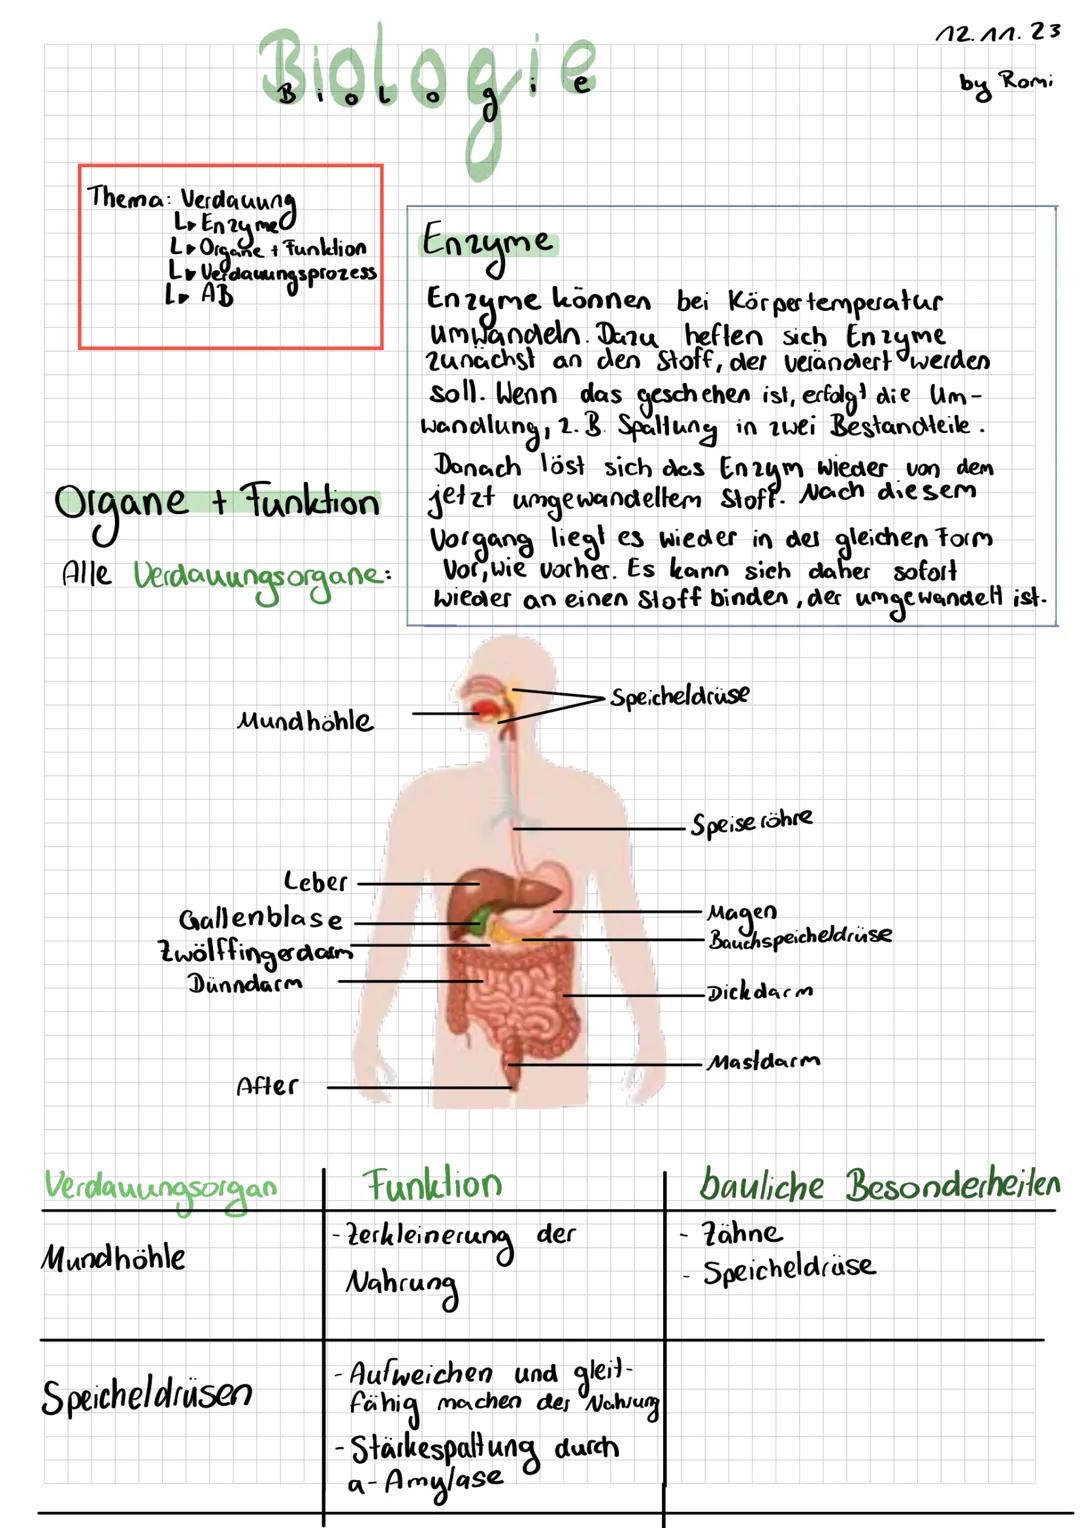 Biologie
B i o l o g i e
12.11.23
by Romi
Thema: Verdauung
↳ Enzyme
↳ Organe + Funktion
↳ Verdauungsprozess
↳ AB
Enzyme
Enzyme können bei Körpertemperatur
umwandeln. Dazu heften sich Enzyme
zunächst an den Stoff, der verändert werden
soll. Wenn das geschehen ist, erfolgt die Um-
wandlung, z.B. Spaltung in zwei Bestandteile.
Danach löst sich das Enzym wieder von dem
jetzt umgewandeltem Stoff. Nach diesem
Vorgang liegt es wieder in der gleichen Form
vor, wie vorher. Es kann sich daher sofort
wieder an einen Stoff binden, der umgewandelt ist.
Organe + Funktion
Alle Verdauungsorgane:
Speicheldrüse
Mundhöhle
Speiseröhre
Leber
Gallenblase
Zwölffingerdarm
Dünndarm
Magen
Bauchspeicheldrüse
Dickdarm
Mastdarm
After
Verdauungsorgan
Funktion
bauliche Besonderheiten
Mundhöhle
- Zerkleinerung der
Nahrung
- Zähne
- Speicheldrüse
Speicheldrüsen
- Aufweichen und gleit-
fähig machen der Nahrung
- Stärkespaltung durch
a-Amylase